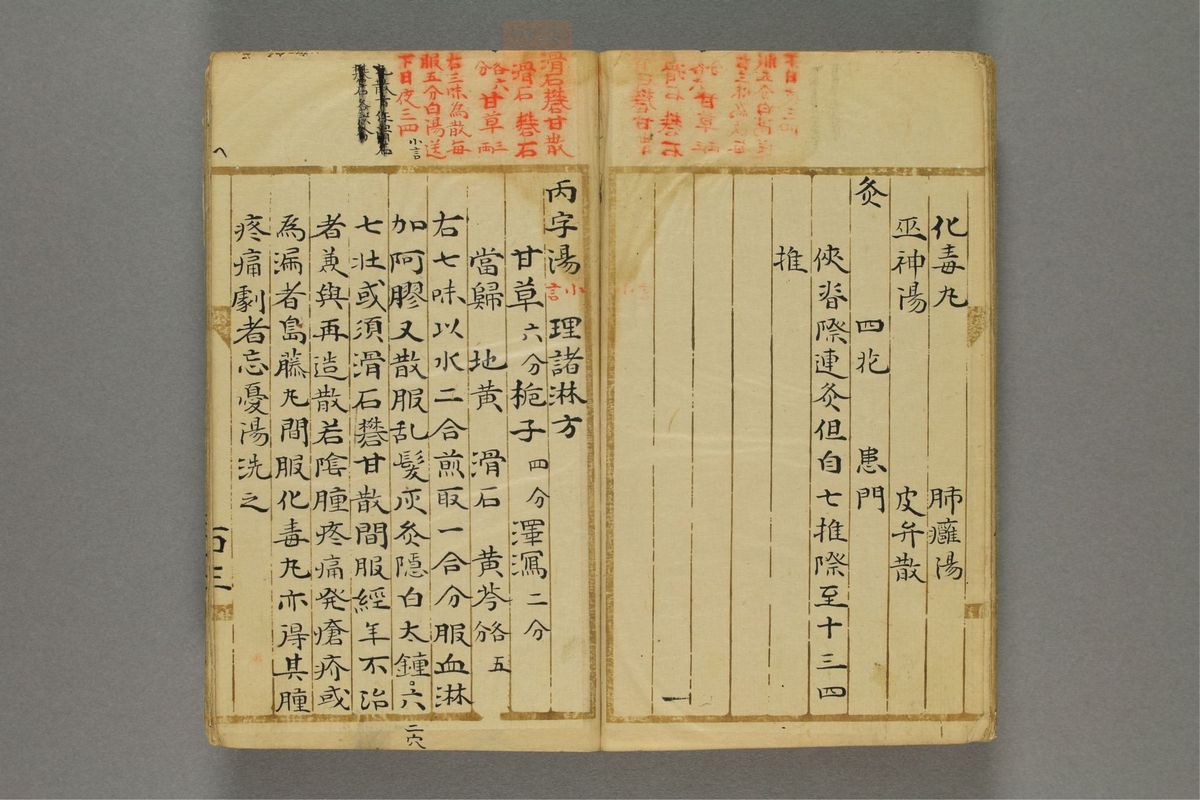 化毒丸 肺癰湯
巫神湯 皮弁散
灸 四花 患門
俠脊際連灸但自七推際至十三四
推
滑石礬甘散
滑石 礬石
各六分 甘草 三兩
右三味為散每
服五分白湯送
下日夜三四
小言
丙字湯 小言 理諸淋方
甘草 六分 梔子 四分 澤瀉 二分
當歸 地黃 滑石 黃芩 各五分
右七味以水二合煎取一合分服血淋
加阿膠又散服乱髮灰灸隱白太鐘各六
二穴
七壯或須滑石礬甘散間服經年不治
者兼與再造散若陰腫疼痛発瘡疥或
為漏者島藤丸間服化毒丸亦得其腫
疼痛劇者忘憂湯洗之